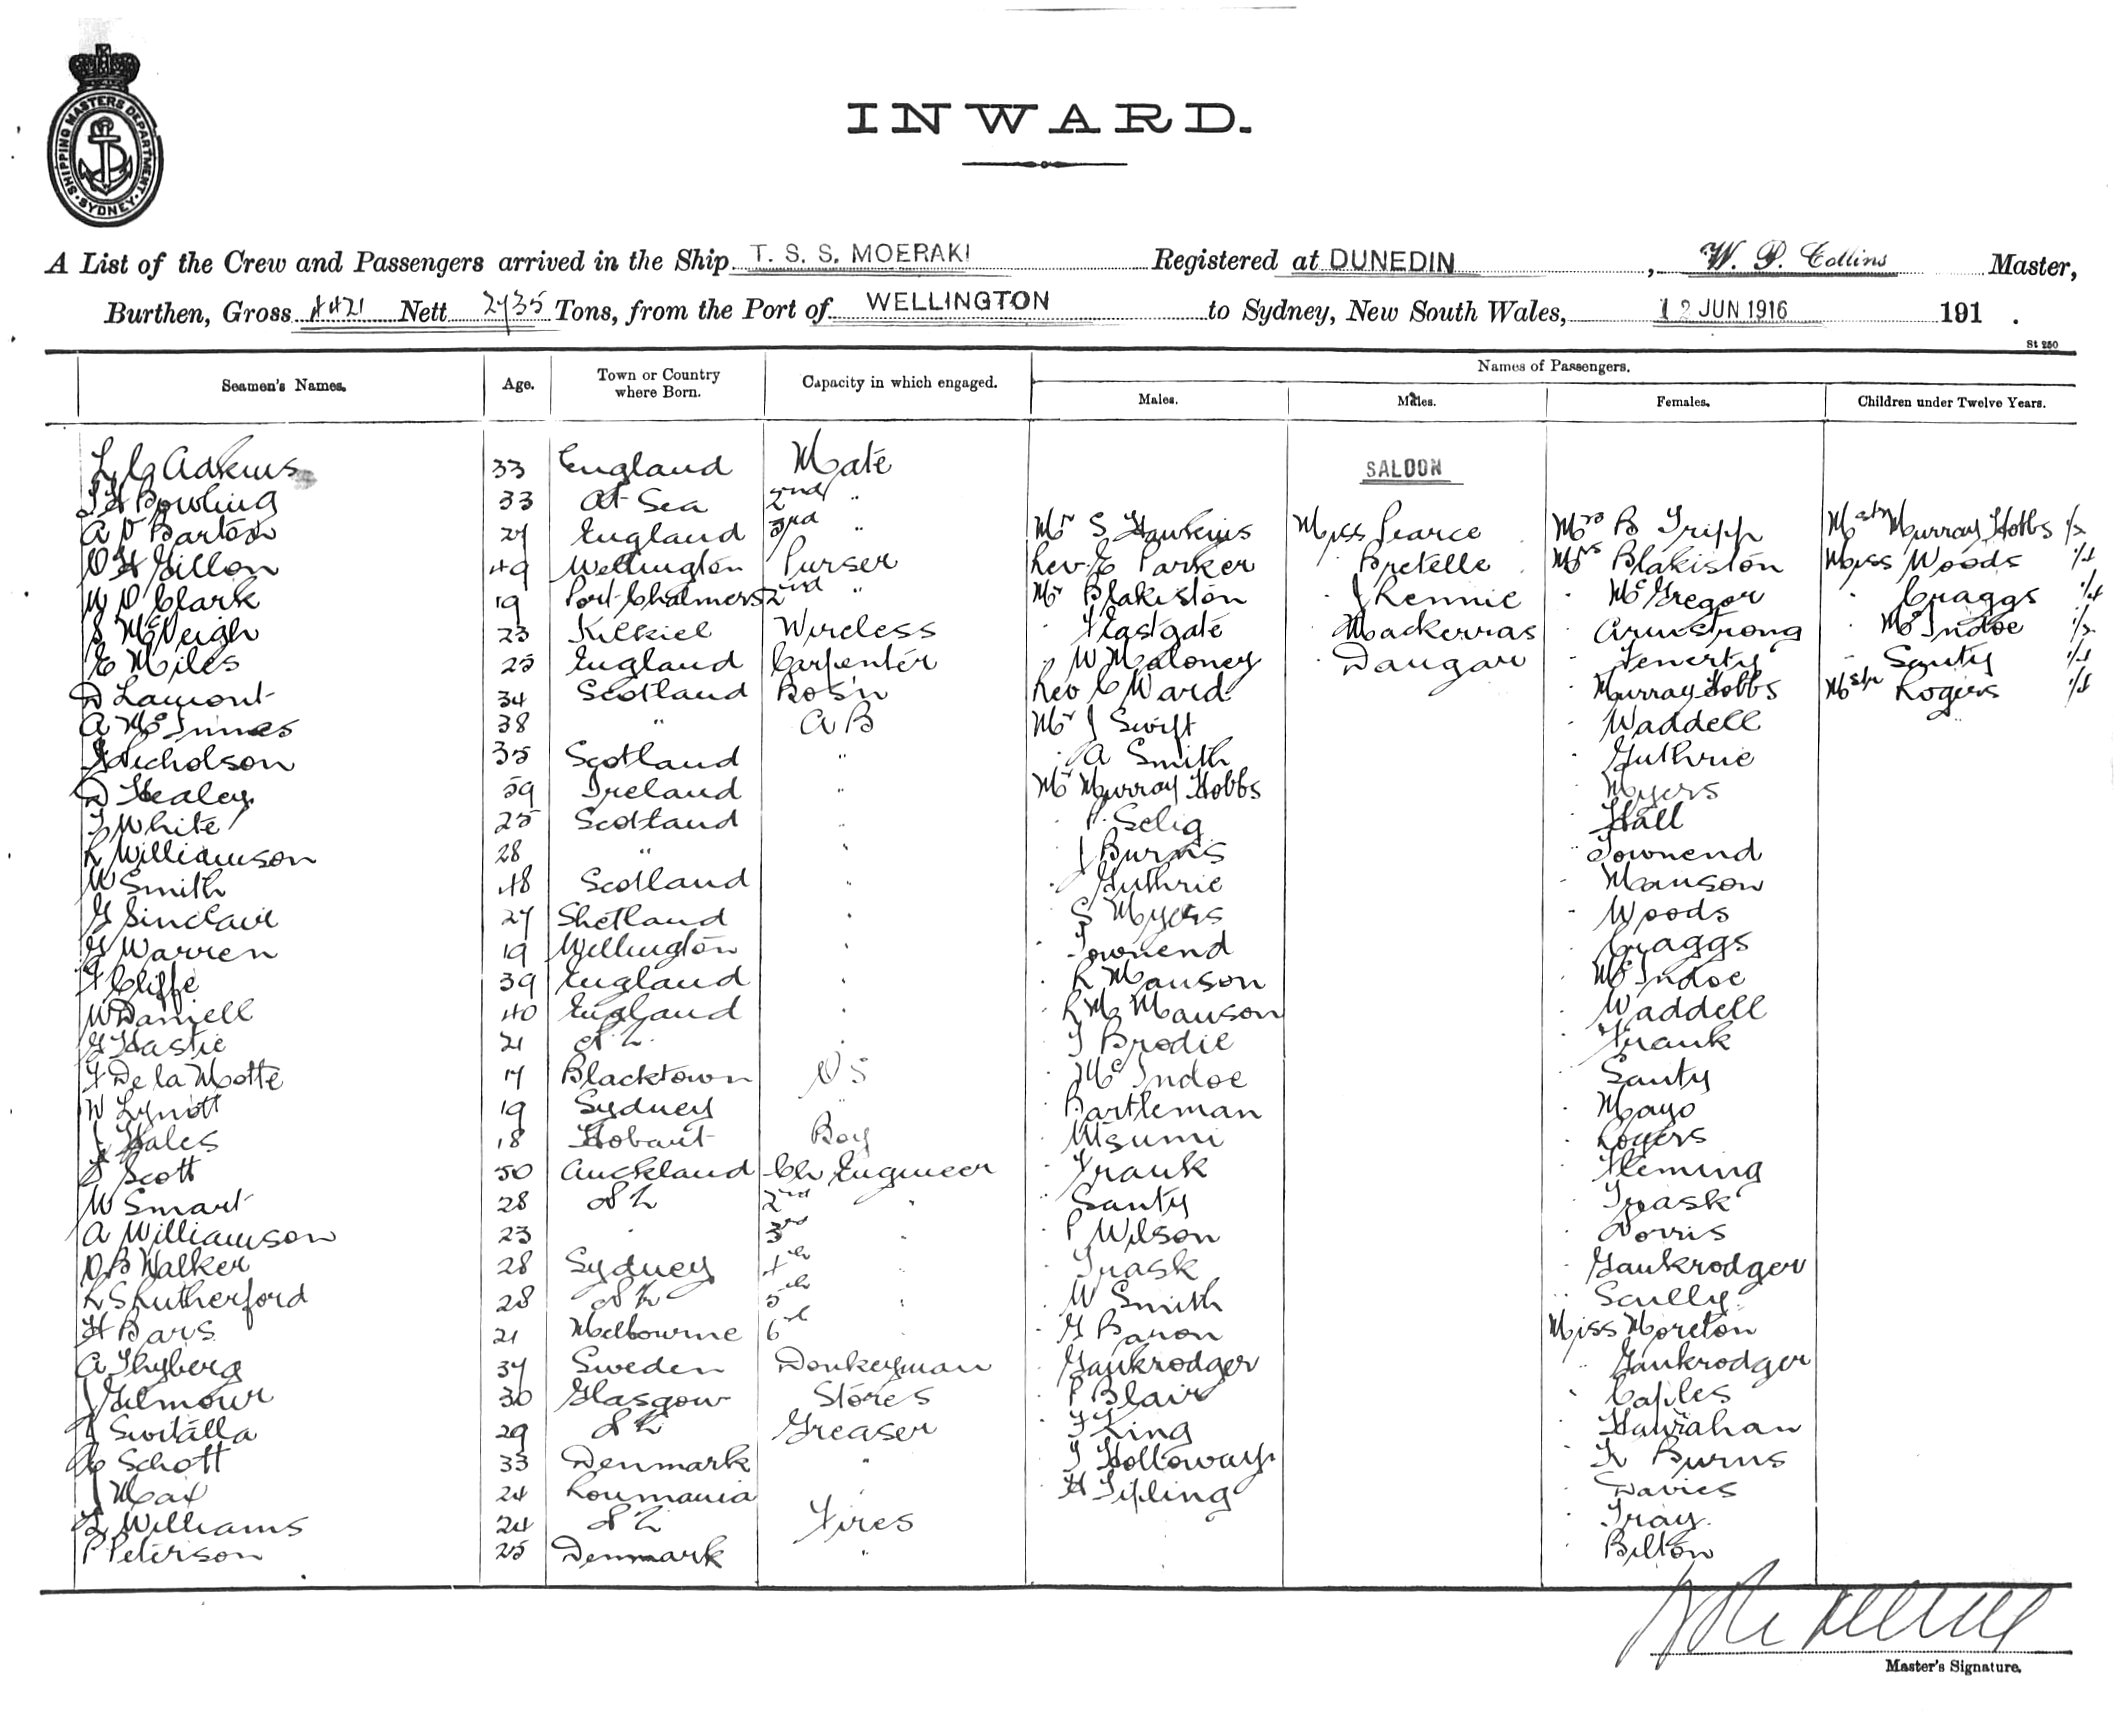 SHIPPING MASTERS DEPARTMENT
SYDNEY
INWARD.
A List of the Crew and Passengers arrived in the Ship T. S. S. MOERAKI Registered at DUNEDIN, W. P. Collins Master,
Burthen, Gross 4421 Nett 2735 Tons, from the Port of WELLINGTON to Sydney, New South Wales, 12 JUN 1916 191 .
St 250
Seamen's Names. Age. Town or Country where Born. Capacity in which engaged. Names of Passengers.
Males. Males. Females. Children under Twelve Years.
Adkins 33 England Mate SALOON
Bowling 33 At Sea 2nd "
A V Barton 27 England 3rd " Mr S Hawkins Miss Pearce Mrs B Tripp Mstr Murray Hobbs
Gillon 49 Wellington Purser Rev E Parker Bretelle Mrs Blakiston Miss Woods
Clark 19 Port Chalmers 2nd " Mr Blakiston J Rennie McGregor Craggs
S McVeigh 23 Kilkiel Wireless Flastgate Mackerras Armstrong McIndoe
E Miles 25 England Carpenter W Maloney Daugar Fenerty Santy
D Lamont 34 Scotland Bos'n Rev C Ward Murray Hobbs Mstr Rogers
A McInnes 38 " A B Mr J Swift Waddell
Nicholson 35 Scotland " A Smith Guthrie
D Healey 59 Ireland " Mr Murray Hobbs Myers
T White 25 Scotland " P Selig Hall
R Williamson 28 " " J Burns Townend
W Smith 48 Scotland " Guthrie Manson
G Sinclair 27 Shetland " S Myers Woods
G Warren 19 Wellington " Townend Craggs
F Cliffe 39 England " R Manson McIndoe
W Daniell 40 England " R M Manson Waddell
G Hastie 21 N Z " T Brodie Frank
F De la Motte 17 Blacktown O S McIndoe Santy
W Lynott 19 Sydney " Bartleman Mayo
J Hales 18 Hobart Boy Utsumi Rogers
S Scott 50 Auckland Ch Engineer Frank Fleming
W Smart 28 N Z 2nd " Santy Trask
A Williamson 23 " 3rd " P Wilson Norris
O B Walker 28 Sydney 4th " Trask Gaukrodger
R S Rutherford 28 N Z 5th " W Smith Scully
H Bars 21 Melbourne 6th " G Baron Miss Moreton
A Thyberg 37 Sweden Donkeyman Gaukrodger " Gaukrodger
J Gilmour 30 Glasgow Stores P Blair Caples
Switalla 29 N Z Greaser F King Hanrahan
Schott 33 Denmark " T Holloway K Burns
J Max 24 Roumania " H Tipling Davies
L Williams 24 N Z Fires Tray
P Peterson 25 Denmark " Bilton
Master's Signature.